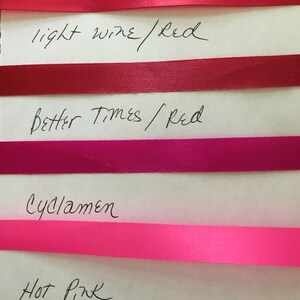 light wine/Red
Better Times/Red
Cyclamen
Hot Pink